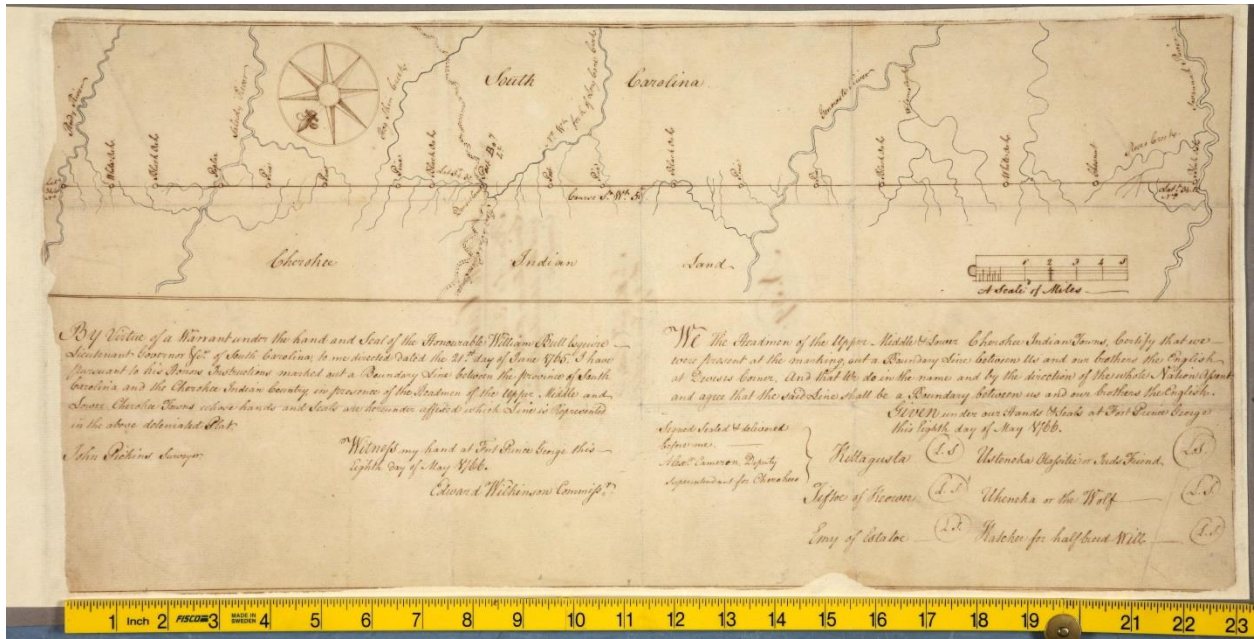 South Carolina
Reedy River
White Oak
Black Oak
Saludy River
Poplar
Pine
Pine
Pine
Black Oak
Post Bo
Pine
Black Oak
Pine
Pine
Black Oak
White Oak
Chesnut
Savannah River
Course So. Wt. 50
Cherokee Indian Land
1 2 3 4 5
A Scale of Miles
By Virtue of a Warrant under the hand and Seal of the Honourable William Bull Esquire
Lieutenant Governor &c. of South Carolina, to me directed dated the 21st day of June 1765. I have
pursuant to his Honors Instructions marked out a Boundary Line between the province of South
Carolina and the Cherokee Indian Country in presence of the Headmen of the Upper Middle and
Lower Cherokee Towns whose hands and Seals are hereunder affixed which Line is Represented
in the above deleniated Plat.
John Pickins Surveyor
Witness my hand at Fort Prince George this
Eighth day of May 1766.
Edward Wilkinson Commissr.
We the Headmen of the Upper Middle & Lower Cherokee Indian Towns, Certify that we
were present at the marking out a Boundary Line between Us and our brothers the English
at Dewises Corner, And that We do in the name and by the direction of the whole Nation Assent
and agree that the said Line shall be a Boundary between us and our brothers the English.
Given under our Hands & Seals at Fort Prince George
this Eighth day of May 1766.
Signed Sealed & delivered
before me
Alexr. Cameron, Deputy
Superintendant for Cherokees
Kittagusta L.S Usteneka Otassitie or Juds Friend L.S.
Tiftoe of Keowee L.S. Uheneka or the Wolf L.S.
Emy of Estatoe L.S. Hatcher for half breed Will L.S.
1 Inch 2 FISCO 3 MADE IN SWEDEN 4 5 6 7 8 9 10 11 12 13 14 15 16 17 18 19 20 21 22 23